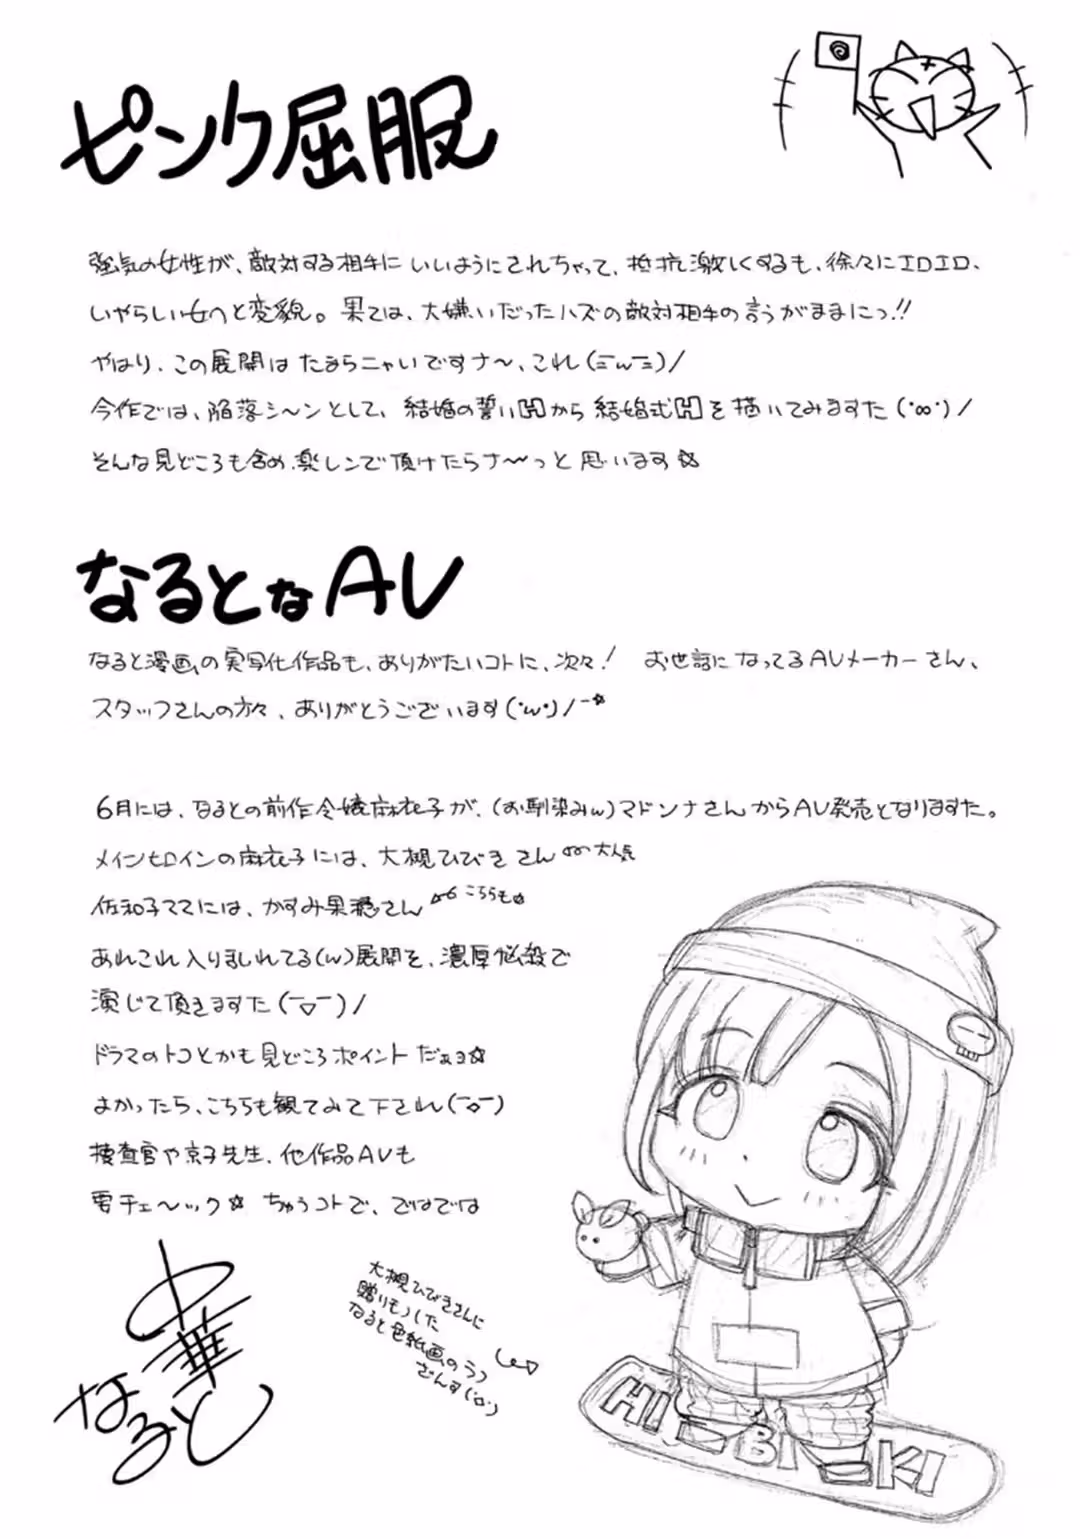 ピンク屈服
強気の女性が、敵対する相手にいいようにされちゃって、抵抗激しくするも、徐々にエロエロ、
いやらしい女へと変貌。果ては、大嫌いだったハズの敵対相手の言うがままにっ!!
やはり、この展開はたまらニャいですナ〜、これ(ニwニ)/
今作では、陥落シ〜ンとして、結婚の誓いHから結婚式Hを描いてみますた(・∞・)/
そんな見どころも含め、楽しンで頂けたらナ〜っと思います☆
なるとなAV
なると漫画の実写化作品も、ありがたいコトに、次々! お世話になってるAVメーカーさん、
スタッフさんの方々、ありがとうございます(・w・)/-☆
6月には、なるとの前作令嬢麻衣子が、(お馴染みw)マドンナさんからAV発売となりますた。
メインヒロインの麻衣子には、大槻ひびきさん 大人気
佐和子ママには、かすみ果穂さん こちらも☆
あれこれ入り乱れてる(w)展開を、濃厚悩殺で
演じて頂きますた(￣▽￣)/
ドラマのトコとかも見どころポイントだぁョ☆
よかったら、こちらも観てみて下され(￣◇￣)
捜査官や京子先生、他作品AVも
要チェ〜ック☆ ちゅうコトで、ではでは
中華
なると
大槻ひびきさんに
贈りもノした
なると色紙画のラフ
ざんす(・o・)
HIBIKI